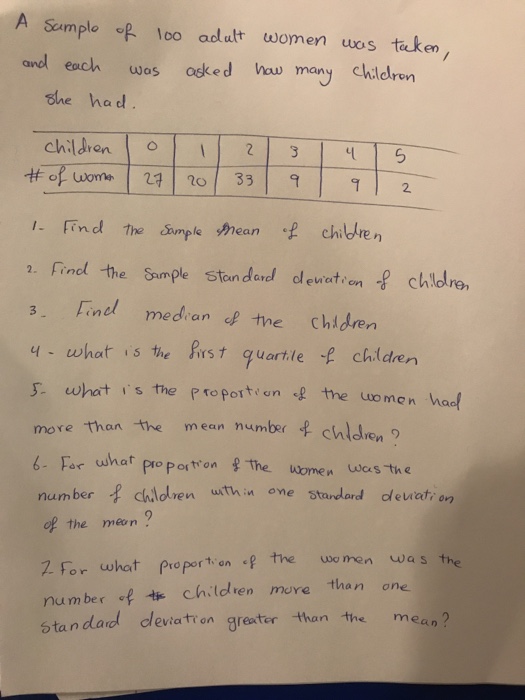 A Sample of 100 adult women was taken,
and each was asked how many children
she had.
children 0 1 2 3 4 5
# of women 27 20 33 9 9 2
1- Find the Sample mean of children
2. Find the Sample Standard deviation of children
3- Find median of the children
4- what is the first quartile of children
5- what is the proportion of the women had
more than the mean number of children?
6- For what proportion of the women was the
number of children within one standard deviation
of the mean?
7. For what proportion of the women was the
number of children more than one
standard deviation greater than the mean?